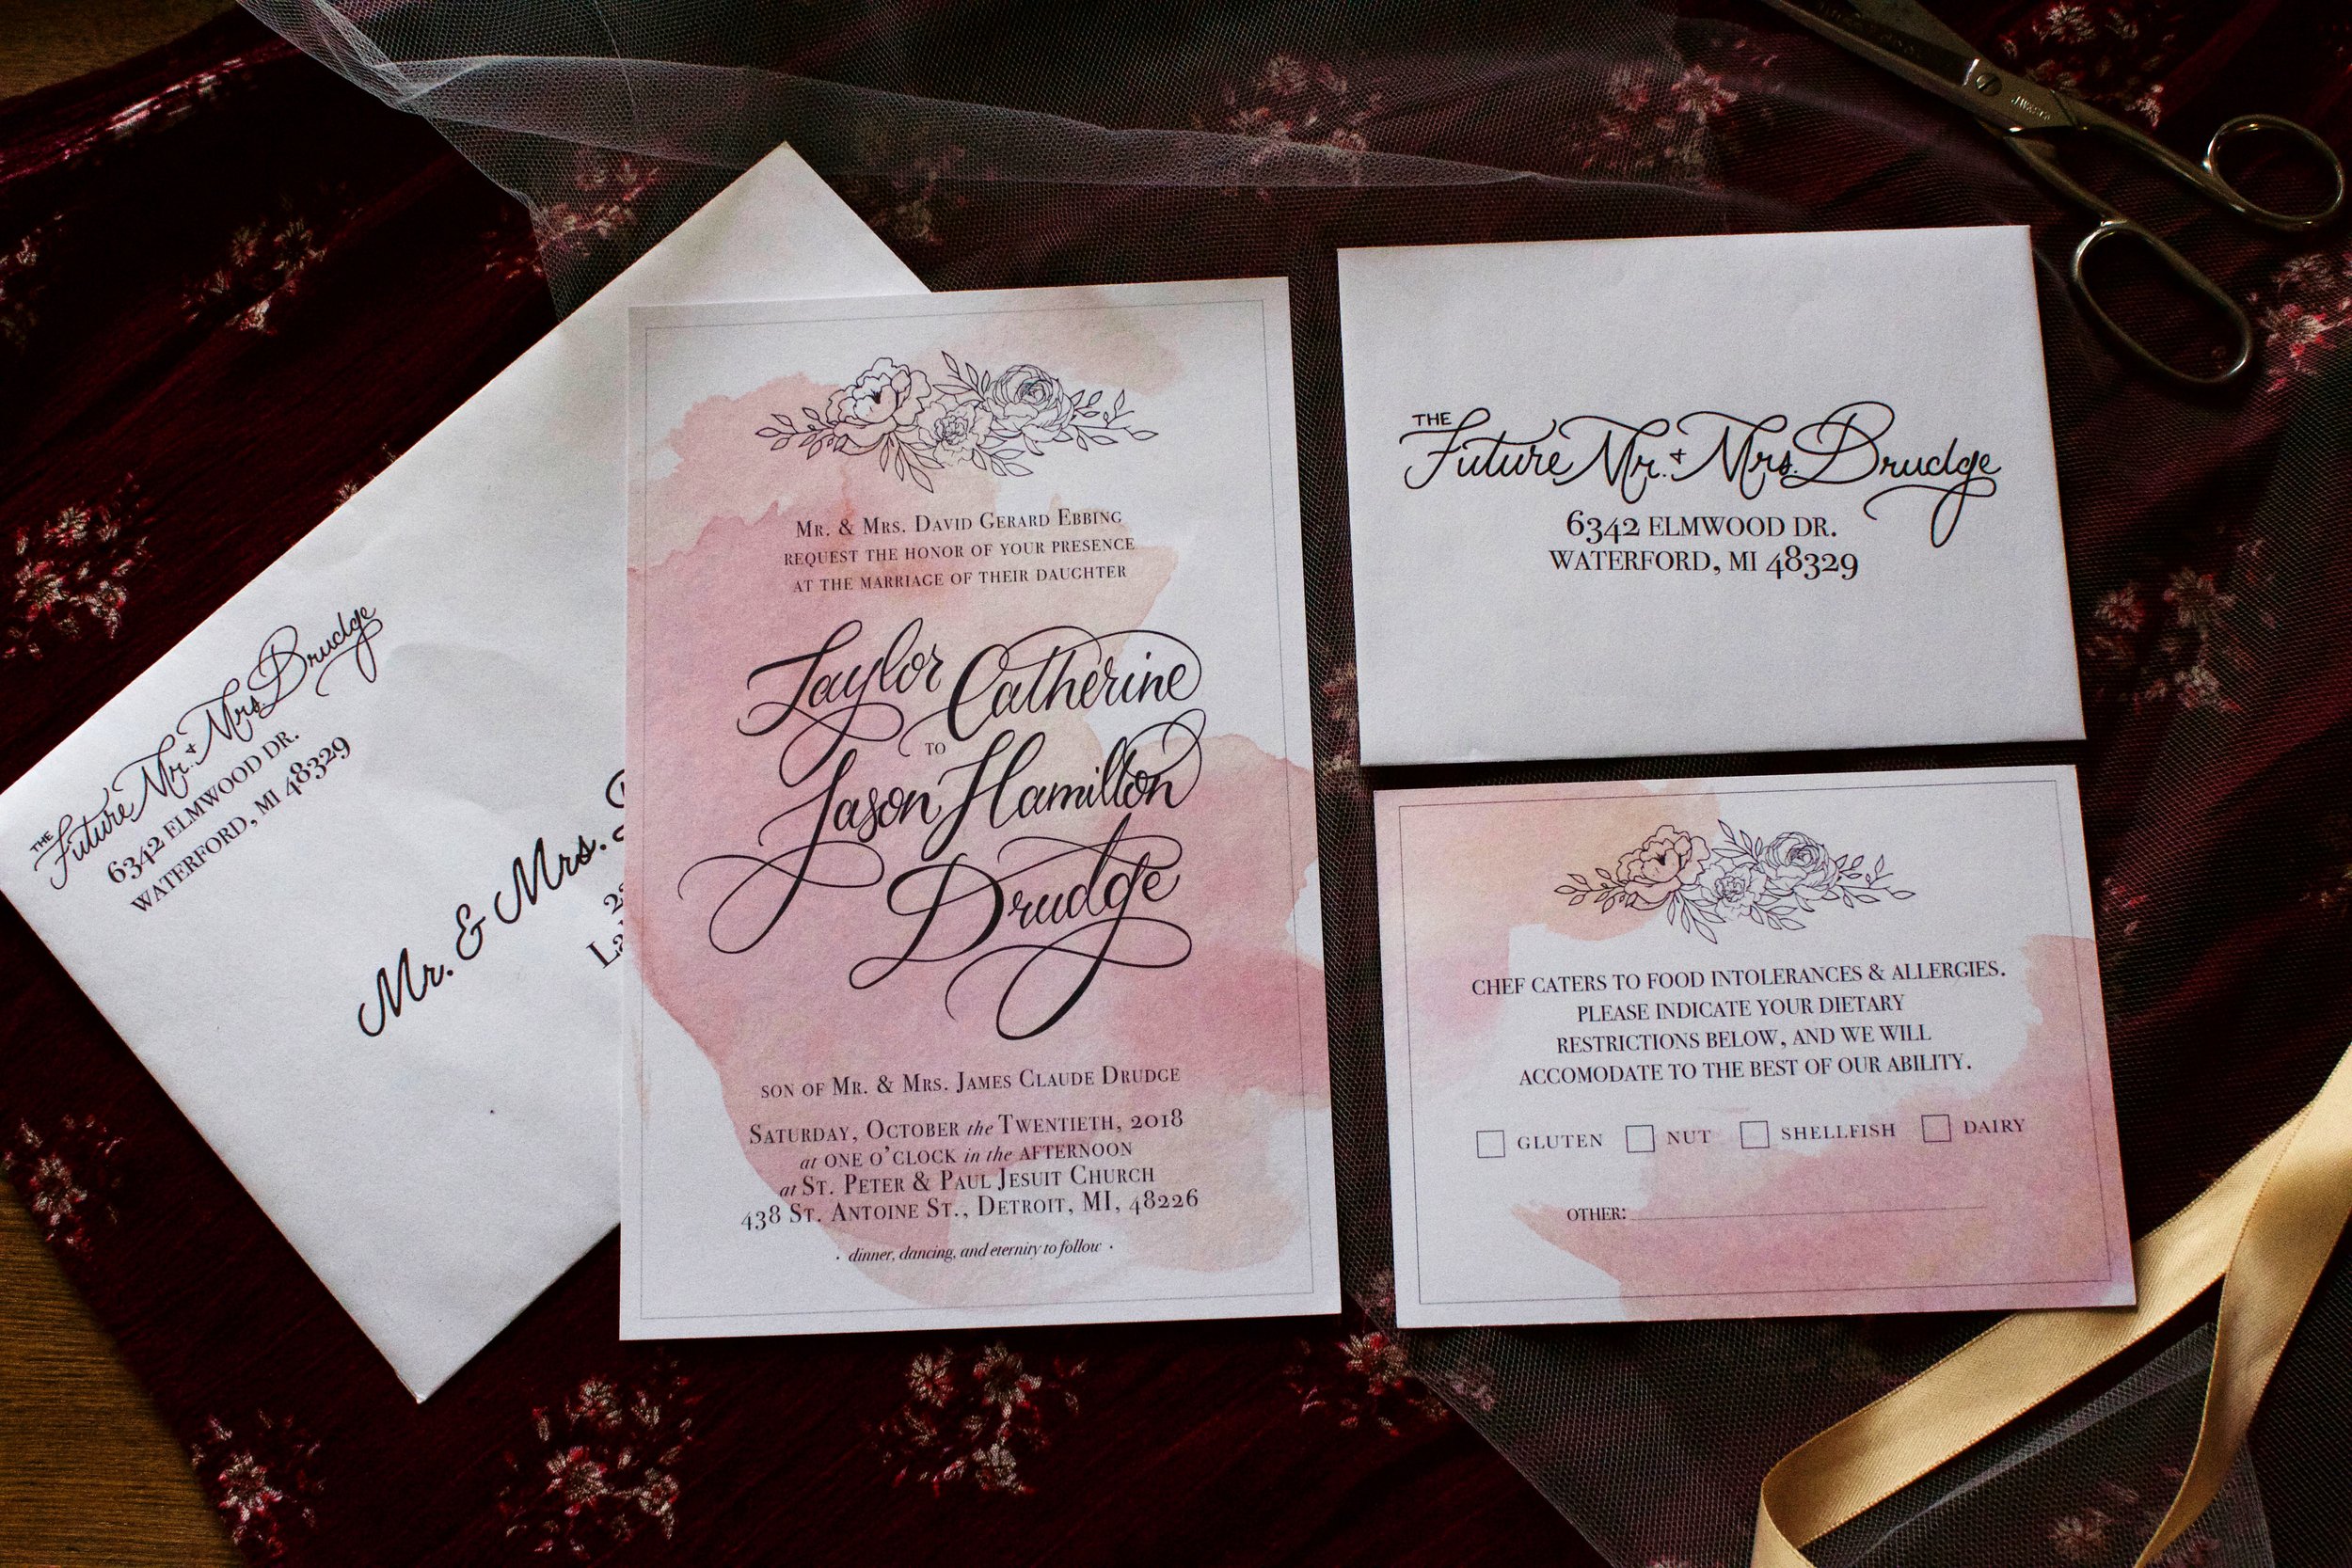 THE
Future Mr. + Mrs. Drudge
6342 ELMWOOD DR.
WATERFORD, MI 48329
Mr. & Mrs.
MR. & MRS. DAVID GERARD EBBING
REQUEST THE HONOR OF YOUR PRESENCE
AT THE MARRIAGE OF THEIR DAUGHTER
Taylor Catherine
TO
Jason Hamilton
Drudge
SON OF MR. & MRS. JAMES CLAUDE DRUDGE
SATURDAY, OCTOBER the TWENTIETH, 2018
at ONE O'CLOCK in the AFTERNOON
at ST. PETER & PAUL JESUIT CHURCH
438 ST. ANTOINE ST., DETROIT, MI, 48226
· dinner, dancing, and eternity to follow ·
THE
Future Mr. + Mrs. Drudge
6342 ELMWOOD DR.
WATERFORD, MI 48329
CHEF CATERS TO FOOD INTOLERANCES & ALLERGIES.
PLEASE INDICATE YOUR DIETARY
RESTRICTIONS BELOW, AND WE WILL
ACCOMODATE TO THE BEST OF OUR ABILITY.
GLUTEN NUT SHELLFISH DAIRY
OTHER: